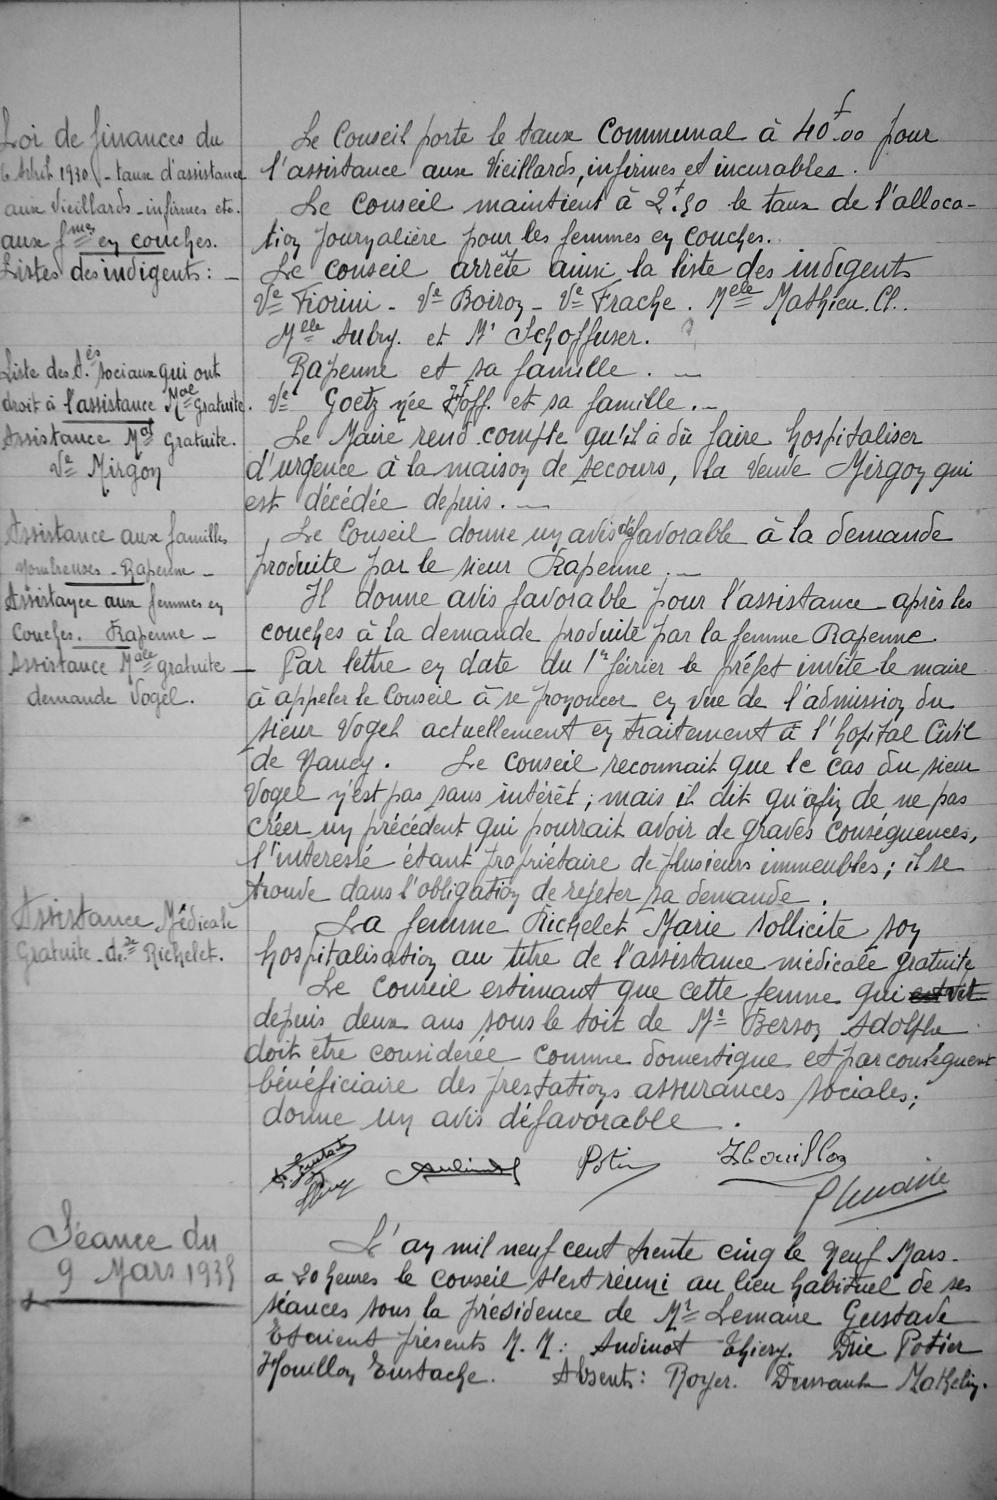 Loi de finances du
6 Avril 1930 - taux d'assistance
aux Vieillards - infirmes etc.
aux fmes en couches.
Listes des indigents : -
Le Conseil porte le taux communal à 40f,00 pour
l'assistance aux Vieillards, infirmes et incurables.
Le Conseil maintient à 2f,50 le taux de l'alloca-
tion journalière pour les femmes en couches.
Le Conseil arrête ainsi la liste des indigents
Ve Fiorini - Ve Boiron - Ve Frache. Melle Mathieu. Cl.
Melle Aubry. et Mr Schoffuser.
Liste des A.és sociaux qui ont
droit à l'assistance Male gratuite.
Rapenne et sa famille. -
Ve Goetz née Hoff. et sa famille. -
Assistance Male Gratuite.
Ve Mirgon
Le Maire rend compte qu'il a dû faire hospitaliser
d'urgence à la maison de secours, la Veuve Mirgon qui
est décédée depuis. -
Assistance aux familles
nombreuses - Rapenne -
Le Conseil donne un avis défavorable à la demande
produite par le sieur Rapenne. -
Assistance aux femmes en
Couches. Rapenne -
Il donne avis favorable pour l'assistance - après les
couches à la demande produite par la femme Rapenne.
Assistance Male gratuite -
demande Vogel.
Par lettre en date du 1er février le préfet invite le maire
à appeler le Conseil à se prononcer en vue de l'admission du
sieur Vogel actuellement en traitement à l'hopital Civil
de Nancy. Le Conseil reconnait que le cas du sieur
Vogel n'est pas sans intérêt ; mais il dit qu'afin de ne pas
créer un précédent qui pourrait avoir de graves conséquences,
l'interessé étant propriétaire de plusieurs immeubles ; il se
trouve dans l'obligation de rejeter sa demande.
Assistance Médicale
Gratuite - de Richelet.
La femme Richelet Marie sollicite son
hospitalisation au titre de l'assistance médicale gratuite
Le Conseil estimant que cette femme qui est vit
depuis deux ans sous le toit de Mr Berson Adolphe
doit être considérée comme domestique et par conséquent
bénéficiaire des prestations assurances sociales ;
donne un avis défavorable.
Eustache Audinot Potier Houillon
Lemaire
Séance du
9 Mars 1935
L'an mil neuf cent trente cinq le Neuf Mars -
a 20 heures le conseil s'est réuni au lieu habituel de ses
séances sous la présidence de Mr Lemaire Gustave
Etaient présents M.M : Audinot Thiery. Potier
Houillon Eustache. Absents : Royer. Mathelin.